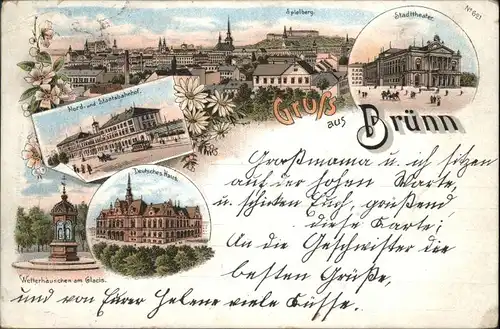 Spielberg.
Stadttheater.
No 681
Nord- und Staatsbahnhof.
Gruß
aus
Brünn
Deutsches Haus.
Wetterhäuschen am Glacis.
Großmama u. ich sitzen
auf der hohen Warte,
u. schicken Euch, grüßend
diese Karte;
An die Geschwister die
besten Grüße,
und von Eurer Helene viele Küsse.